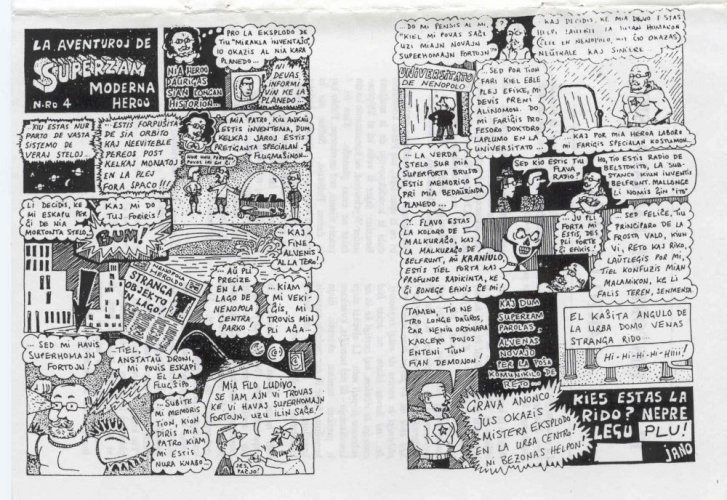 LA AVENTUROJ DE
SUPERZAM
MODERNA
HEROJ
N-RO 4
PRO LA EKSPLODO DE
TIU "MIRAKLA INVENTAĴO"
IO OKAZIS AL NIA KARA
PLANEDO...
NIA HEROO
DAŬRIGAS
SIAN LONGAN
HISTORION...
NI
DEVAS
INFORMI
VIN KE LA
PLANEDO...
KIU ESTAS NUR
PARTO DE VASTA
SISTEMO DE
VERAJ STELOJ...
...ESTIS FORPUŜITA
DE SIA ORBITO
KAJ NEEVITEBLE
PEREOS POST
KELKAJ MONATOJ
EN LA PLEJ
FORA SPACO!!!
MIA PATRO, KIU ANKAŬ
ESTIS INVENTEMA, DUM
KELKAJ JAROJ ESTIS
PRETIGANTA SPECIALAN
FLUGMAŜINON...
LI DECIDIS, KE
MI ESKAPU PER
ĜI DE NIA
MORTONTA STELO.
KAJ MI DO
TUJ FORIRIS!
BUM!
... KAJ
FINE
ALVENIS
AL LA TERO!
NENOPOLA
HEROLDO
STRANGA
OBJEKTO
EN LAGO!
... AŬ PLI
PRECIZE
EN LA
LAGO DE
NENOPOLA
CENTRA
PARKO!
...KIAM
MI VEKI-
ĜIS, MI
TROVIS MIN
PLI AĜA...
... SED MI HAVIS
SUPERHOMAJN
FORTOJN!
...TIEL,
ANSTATAŬ DRONI,
MI POVIS ESKAPI
EL LA
FLUGŜIPO.
...SUBITE
MI MEMORIS
TION, KION
DIRIS MIA
PATRO KIAM
MI ESTIS
NURA KNABO...
MIA FILO LUDIVO,
SE IAM AJN VI TROVAS
KE VI HAVAS SUPERHOMAJN
FORTOJN, UZU ILIN SAĜE!
JES,
PAĈJO!
...DO MI PENSIS AL MI,
"KIEL MI POVAS SAĜE
UZI MIAJN NOVAJN
SUPERHOMAJN FORTOJN?"
KAJ DECIDIS, KE MIA DEVO ESTAS
NEŬTRALE KAJ SINCERE.
UNIVERSITATO
DE NENOPOLO
SED POR TION
FARI KIEL EBLE
PLEJ EFIKE, MI
DEVIS PRENI
ALINOMON. DO
MI FARIĜIS PRO-
FESORO DOKTORO
LAPLUMO EN LA
UNIVERSITATO
... KAJ POR MIA HEROA LABORO
MI FARIĜIS SPECIALAN KOSTUMON.
...LA VERDA
STELO SUR MIA
SUPERFORTA BRUSTO
ESTIS MEMORIGO
PRI MIA BEDAŬRINDA
PLANEDO...
SED KIO ESTIS TIU
FLAVA
RADIO?
HO, TIO ESTIS RADIO DE
BELSTOKITO, LA SUB-
STANCO KIUN INVENTIS
BELFRUNT. MALLONGE
LI NOMIS ĜIN "ITO"
... FLAVO ESTAS
LA KOLORO DE
MALKURAĜO, KAJ
LA MALKURAĜO DE
BELFRUNT, AŬ KRANIULO
ESTIS TIEL FORTA KAJ
PROFUNDE RADIKINTA, KE
ĜI BONEGE EFIKIS ĈE MI!
...JU PLI
FORTA MI
ESTIS, DES
PLI FORTE
ĜI EFIKIS.
SED FELIĈE, TIU
PRINCIPARO DE LA
FROSTA VALO, KIUN
VI, RETO KAJ RIKO,
LAŬTLEGIS POR MI,
TIEL KONFUZIS MIAN
MALAMIKON, KE LI
FALIS TEREN, SENMENSA
TAMEN, TIO NE
TRO LONGE DAŬROS,
ĈAR NENIU ORDINARA
KARCERO POVOS
ENTENI TIUN
FIAN DEMONOJN!
KAJ DUM
SUPERZAM
PAROLAS,
ALVENAS
NOVAĴO
PER LA POŜA
KOMUNIKILO DE
RETO...
GRAVA ANONCO
ĴUS OKAZIS
MISTERA EKSPLODO
EN LA URBA CENTRO!
NI BEZONAS HELPON!
EL KAŜITA ANGULO DE
LA URBA DOMO VENAS
STRANGA RIDO...
HI-HI-HI-HI-HIIII!
KIES ESTAS LA
RIDO? NEPRE
LEGU PLU!
JANO